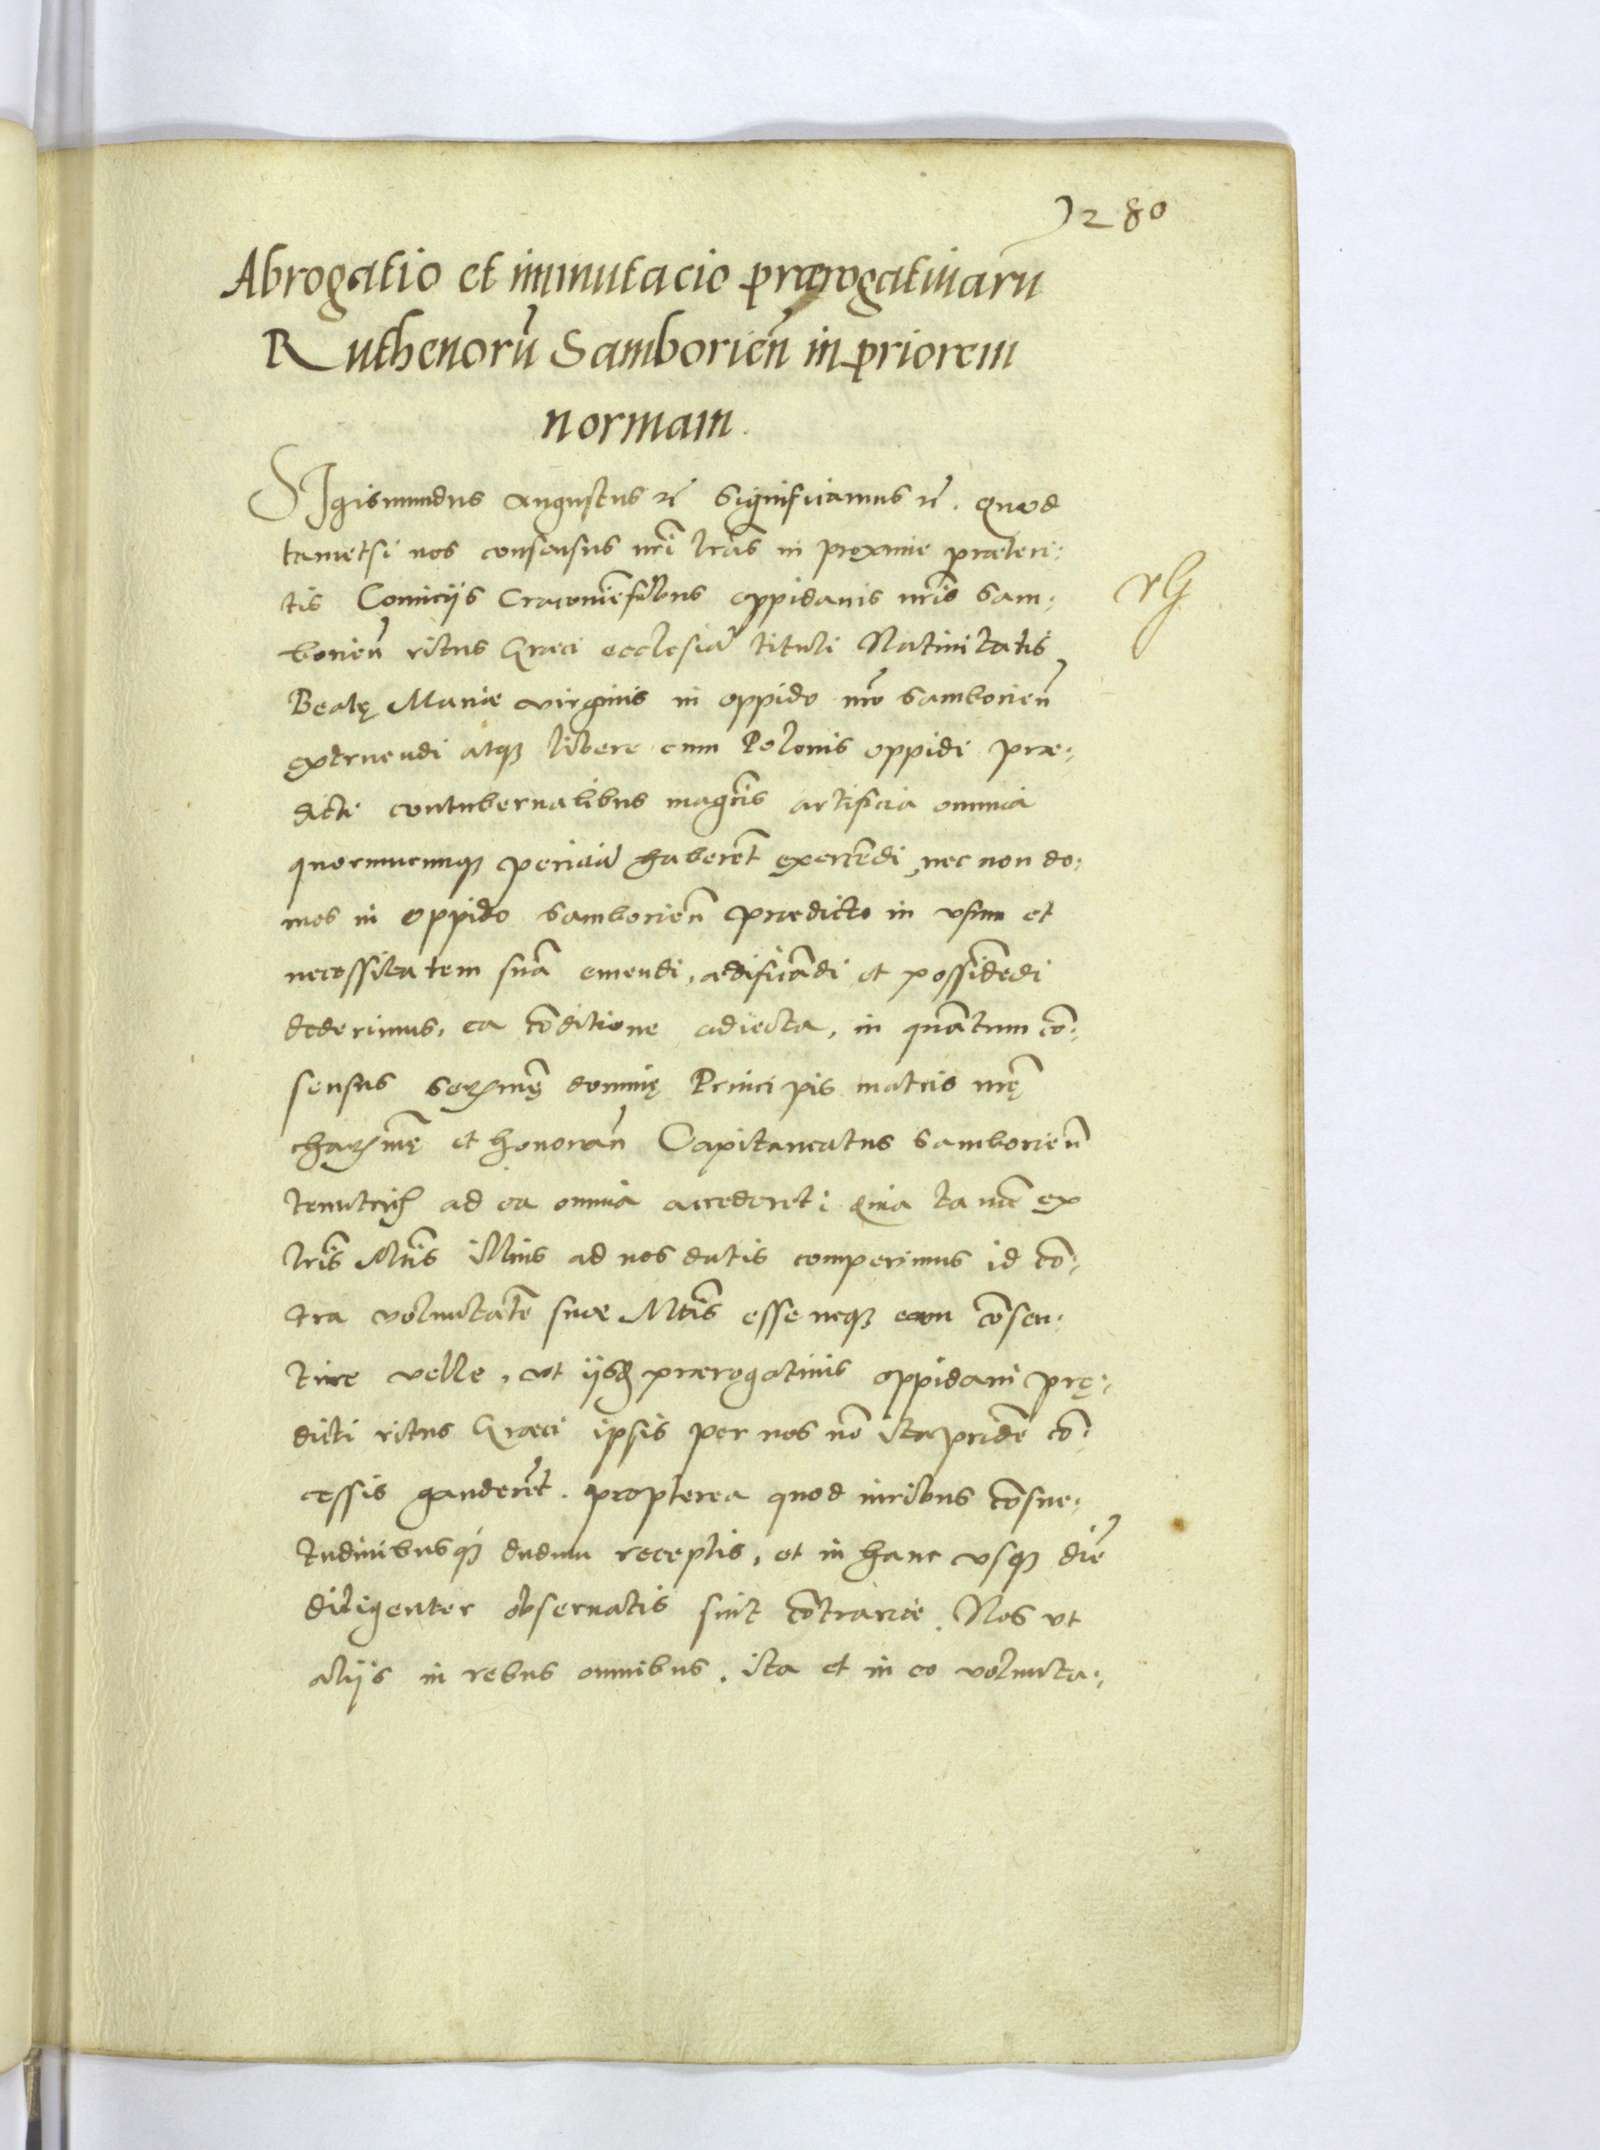 280
Abrogatio et immutacio prærogatiuarũ
Ruthenorũ Samborieñ in priorem
normam.
SIgismundus Augustus rc̃ Significamus rc̃. Quod
tametsi nos consensus nr̃i lr̃as in proxime præteri:
tis Comiciis Cracouien̄sibus oppidanis nr̃is Sam:
borieñ ritus Græci ecclesiã tituli Natiuitatis
Beatę Mariæ virginis in oppido nr̃o Samborieñ
extruendi atq3 libere cum Polonis oppidi præ:
dicti contubernalibus magr̃is artificia omnia
quorumcumq3 periciã haberẽt exercẽdi, nec non do:
mos in oppido Samborieñ prædicto in vsum et
necessitatem suã emendi, ædificãdi et possidẽdi
dederimus, ea cõditione adiecta, in quãtum cõ:
sensus Serₘmę dominę Principis matris nr̃ę
charₘmę et honorañ Capitaneatus Samborieñ
tenutricis ad ea omnia accederet: Quia tamẽ ex
lr̃is Mtis̃ illius ad nos datis comperimus id cõ:
tra volũtatẽ suæ Mtis̃ esse neq3 eam cõsen:
tire velle, vt iisdẽ prærogatiuis oppidani prę:
dicti ritus Græci ipsis per nos nõ ita pridẽ cõ:
cessis gauderẽt. propterea quod iuribus cõsue:
tudinibusq3 dudum receptis, et in hanc vsq3 diẽ
diligenter obseruatis sint cõtrariæ. Nos vt
aliis in rebus omnibus, ita et in eo volunta: